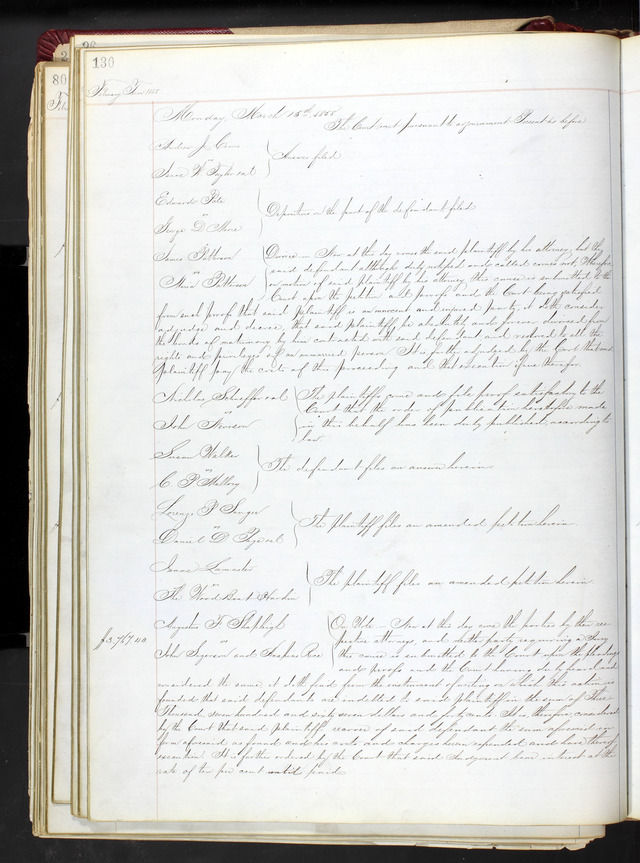 130
80
February Term 1855
Monday, March 15th, 1855
The Court met pursuant to adjournment Present as before
Answer filed
Edward
vs
George D
Deposition on the part of the defendant filed
James Patterson
vs
Patterson
Divorce - Now at this day comes the said plaintiff by his attorney, but the
said defendant although duly notified and called comes not, Thereupon
on motion of said plaintiff by his attorney this cause is submitted to the
Court upon the petition and proofs and the Court being satisfied
from such proof that said plaintiff is an innocent and injured party, it doth consider
adjudge and decree, that said plaintiff be absolutely and forever divorced from
the bonds of matrimony by him contracted with said defendant and restored to all the
rights and privileges of an unmarried person. It is further adjudged by the Court that said
plaintiff pay the costs of this proceeding and that execution issue therefor.
Nicholas Schaeffer et al
vs
John
The plaintiffs come and file proof satisfactory to the
Court that the order of publication heretofore made
in this behalf has been duly published, according to
law
Susan Walker
vs
C. P. Mallory
The defendant files an answer herein
Lorenzo P Sanger
vs
Daniel D Page et al
The plaintiff files an amended petition herein
Isaac
vs
The Boat
The plaintiff files an amended petition herein
$3,767.40
Augustus F Shapleigh
vs
John and
On Note - Now at this day come the parties by their res-
pective attorneys, and neither party requiring a Jury
this cause is submitted to the Court upon the pleadings
and proofs and the Court having duly heard and
considered the same, it doth find from the instrument of writing on which this action is
founded that said defendants are indebted to said plaintiff in the sum of Three
Thousand seven hundred and sixty seven dollars and forty cents. It is therefore considered
by the Court that said plaintiff recover of said defendants the sum aforesaid in
form aforesaid as found and his costs and charges herein expended and have thereof
execution. It is further ordered by the Court that said Judgment bear interest at the
rate of ten per cent until paid